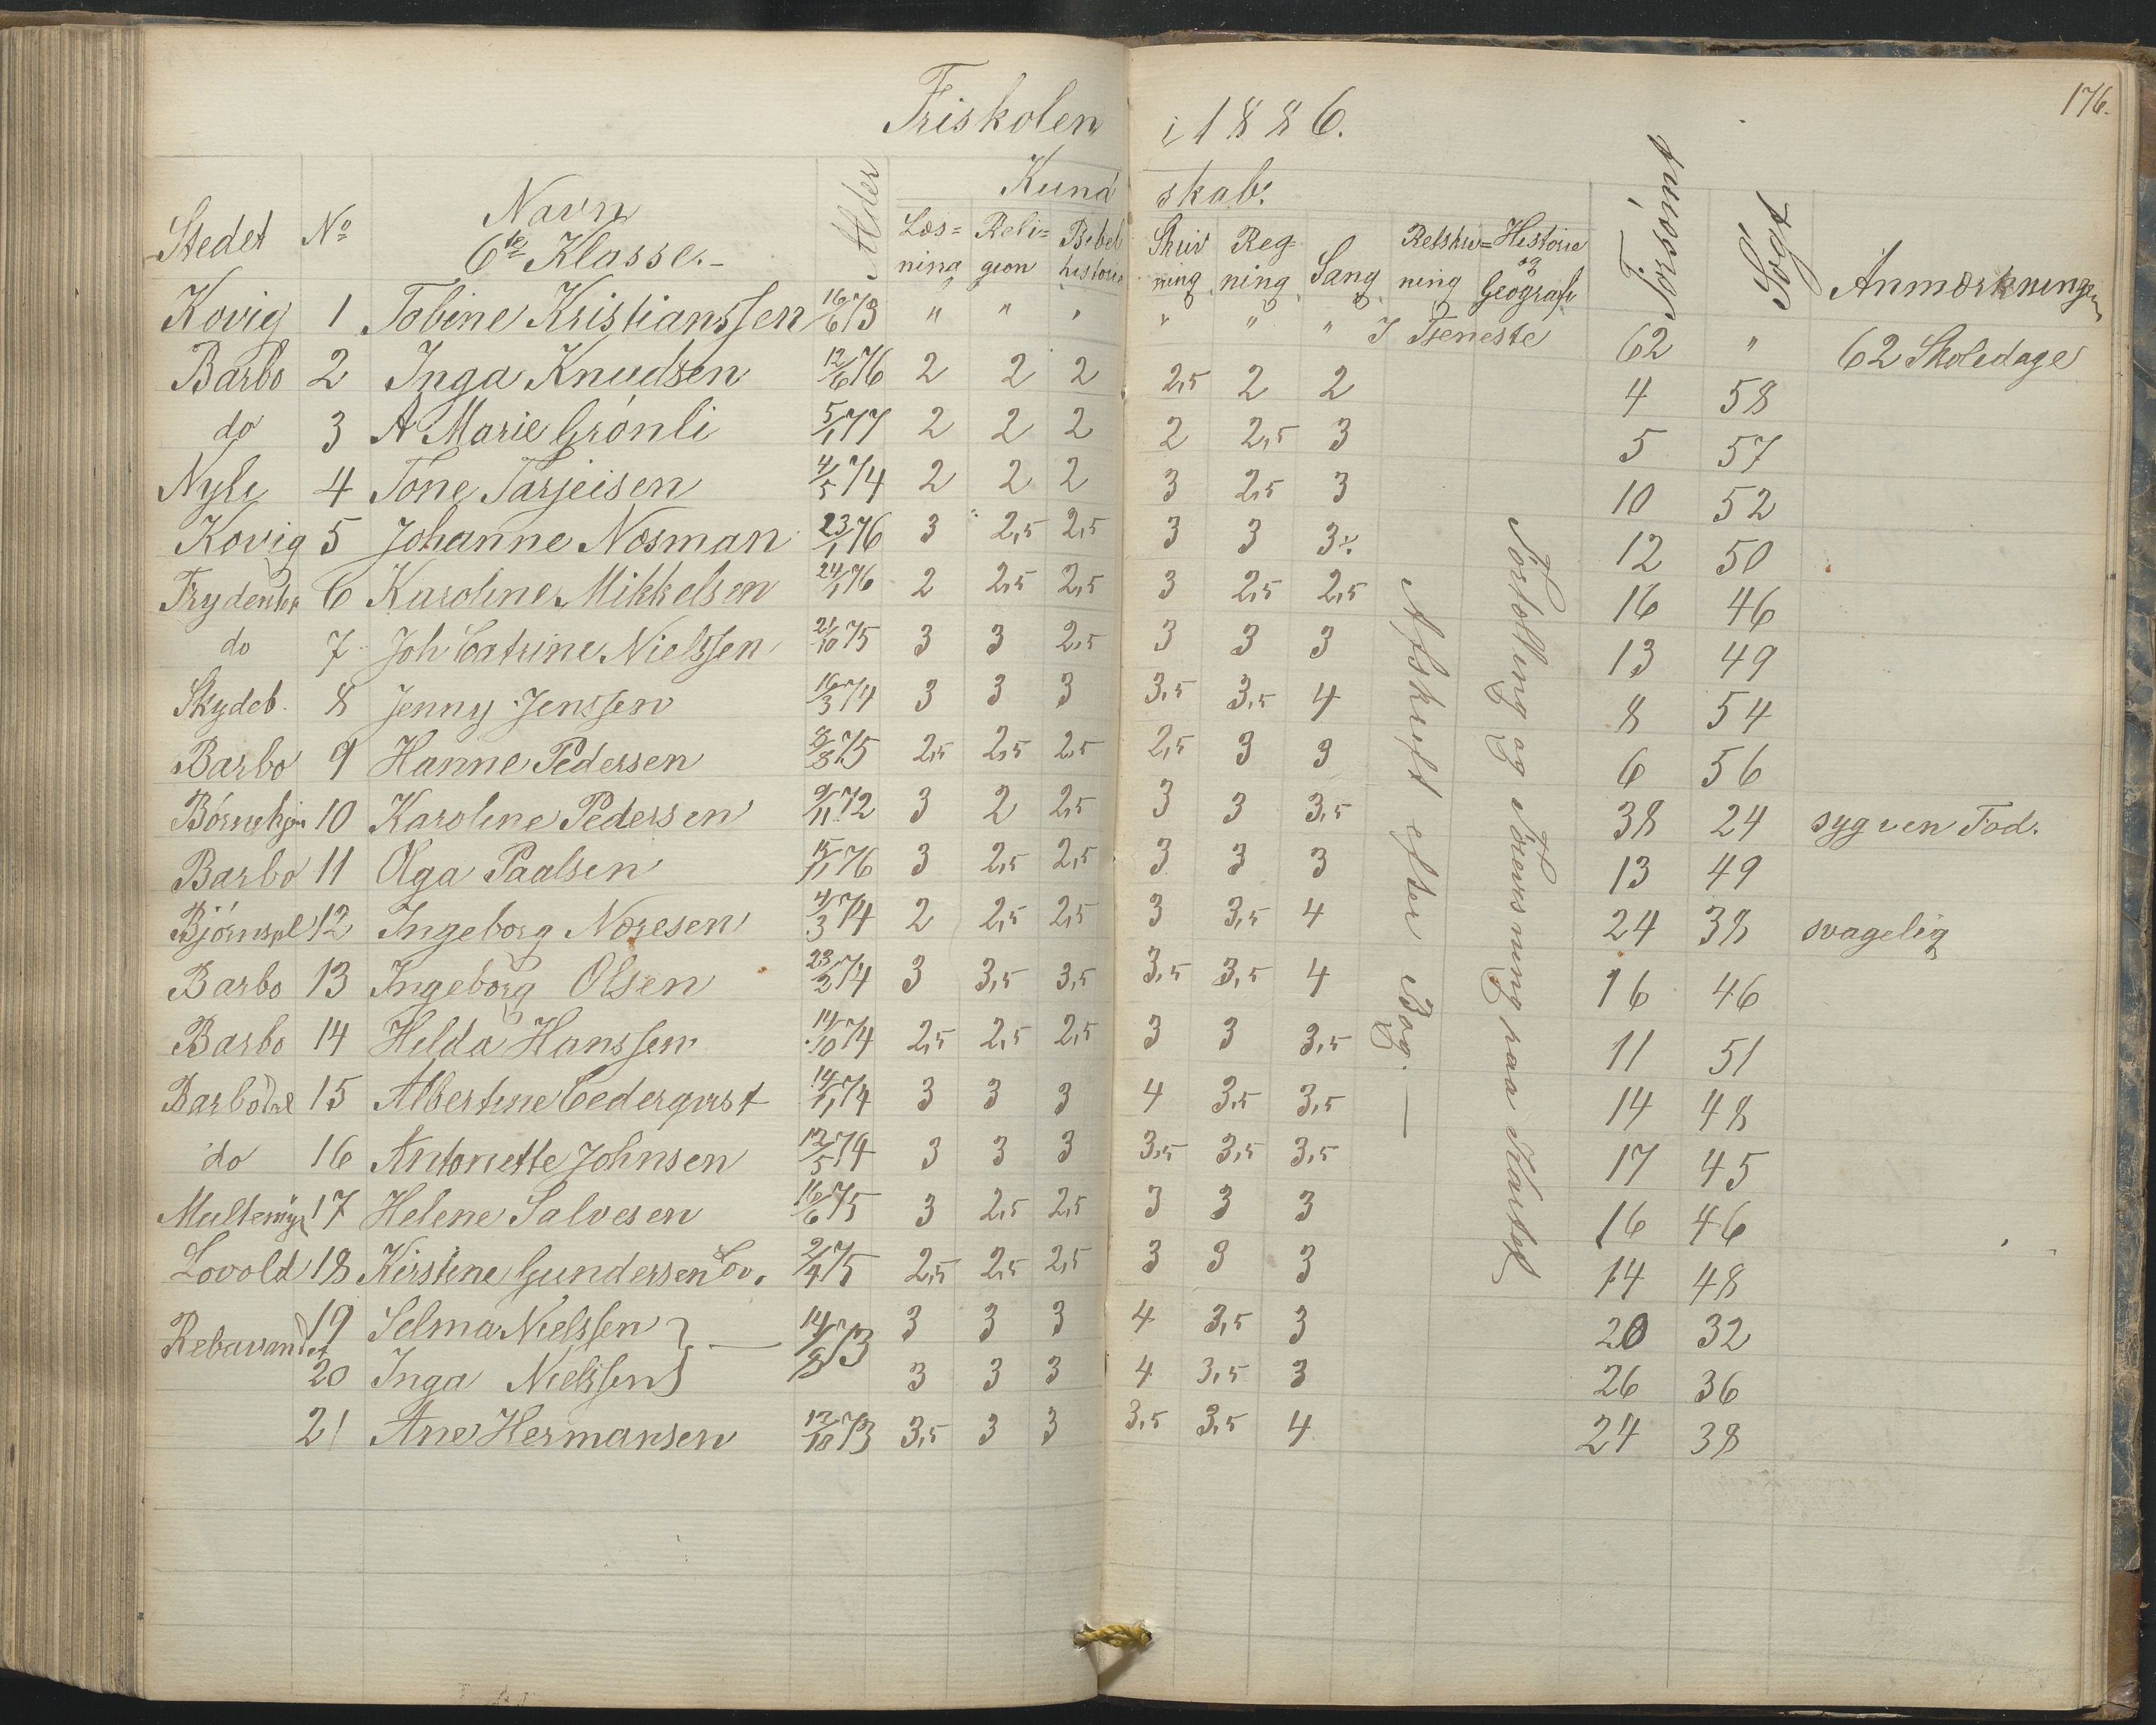 176.
Friskolen i 1886.
Kundskab.
Stedet No Navn 6te Klasse. Alder Læsning Religion Bibelhistorie Skrivning Regning Sang Retskrivning Historie og Geografi Forsømt Søgt Anmærkninger
Kovig 1 Tobine Kristianssen 16/6 73 " " " " " " I Tjeneste 62 " 62 Skoledage
Barbo 2 Inga Knudsen 12/6 76 2 2 2 2,5 2 2 4 58
do 3 A Marie Grönli 5/1 77 2 2 2 2 2,5 3 5 57
4 Tone Tarjeisen 4/5 74 2 2 2 3 2,5 3 10 52
Kovig 5 Johanne Næsman 23/1 76 3 2,5 2,5 3 3 3 12 50
6 Karoline Mikkelsen 24/1 76 2 2,5 2,5 3 2,5 2,5 16 46
do 7 Joh Catrine Nielssen 21/10 75 3 3 2,5 3 3 3 13 49
Skydeb. 8 Jenny Jenssen 16/3 74 3 3 3 3,5 3,5 4 8 54
Barbo 9 Hanne Pedersen 75 2,5 2,5 2,5 2,5 3 3 6 56
10 Karoline Pedersen 9/11 72 3 2 2,5 3 3 3,5 38 24 syg i en Fod.
Barbo 11 Olga Paalsen 76 3 2,5 2,5 3 3 3 13 49
Björnspl 12 Ingeborg Noresen 4/3 74 2 2,5 2,5 3 3,5 4 24 38 svagelig
Barbo 13 Ingeborg Olsen 23/2 74 3 3,5 3,5 3,5 3,5 4 16 46
Barbo 14 Helda Hanssen 14/10 74 2,5 2,5 2,5 3 3 3,5 11 51
Barbodal 15 Albertine Cederqvist 74 3 3 3 4 3,5 3,5 14 48
do 16 Antonette Johnsen 12/5 74 3 3 3 3,5 3,5 3,5 17 45
Multemyr 17 Helene Salvesen 16/6 75 3 2,5 2,5 3 3 3 16 46
Lovold 18 Kirstine Gundersen Lov. 75 2,5 2,5 2,5 3 3 3 14 48
Rebavandet 19 Selma Nielssen } — 14/8 73 3 3 3 4 3,5 3 20 32
20 Inga Nielssen } 3 3 3 4 3,5 3 26 36
21 Ane Hermansen 12/10 73 3,5 3 3 3,5 3,5 4 24 38
Afskrift efter Bog. —
Fortælling og Forevisning paa Kartet